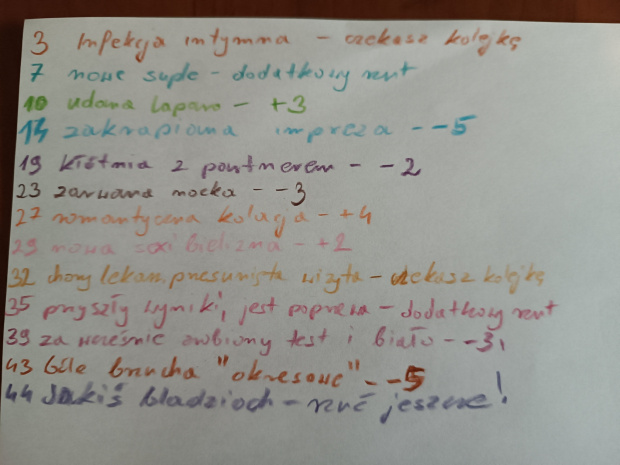 3 Infekcja intymna - czekasz kolejkę
7 nowe suple - dodatkowy rzut
10 udana laparo - +3
14 zakrapiana impreza - -5
19 kłótnia z partnerem - -2
23 zarwana nocka - -3
27 romantyczna kolacja - +4
29 nowa sexi bielizna - +2
32 chory lekarz, przesunięta wizyta - czekasz kolejkę
35 przyszły wyniki, jest poprawa - dodatkowy rzut
39 za wcześnie zrobiony test i biało - -3
43 bóle brzucha "okresowe" - -5
44 Jakiś bladzioch - rzuć jeszcze!